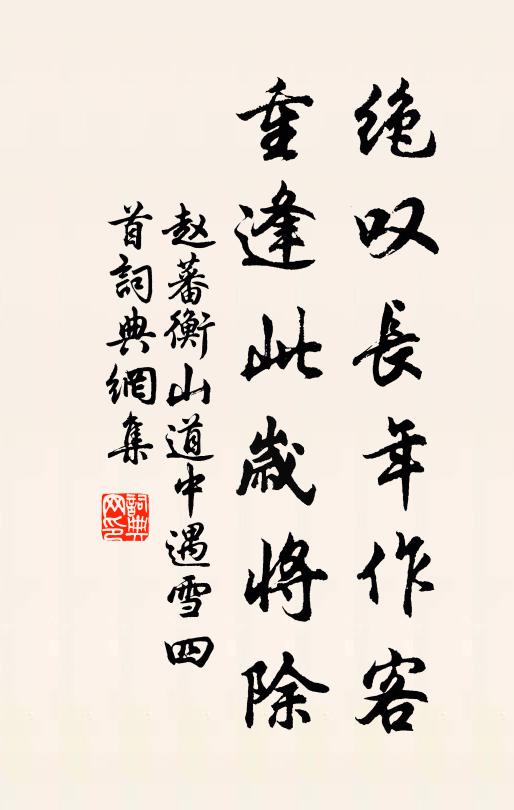 绝叹長年作客
重逢此歲將除
赵蕃衡山道中遇雪四
首詞典網集
詞典网印